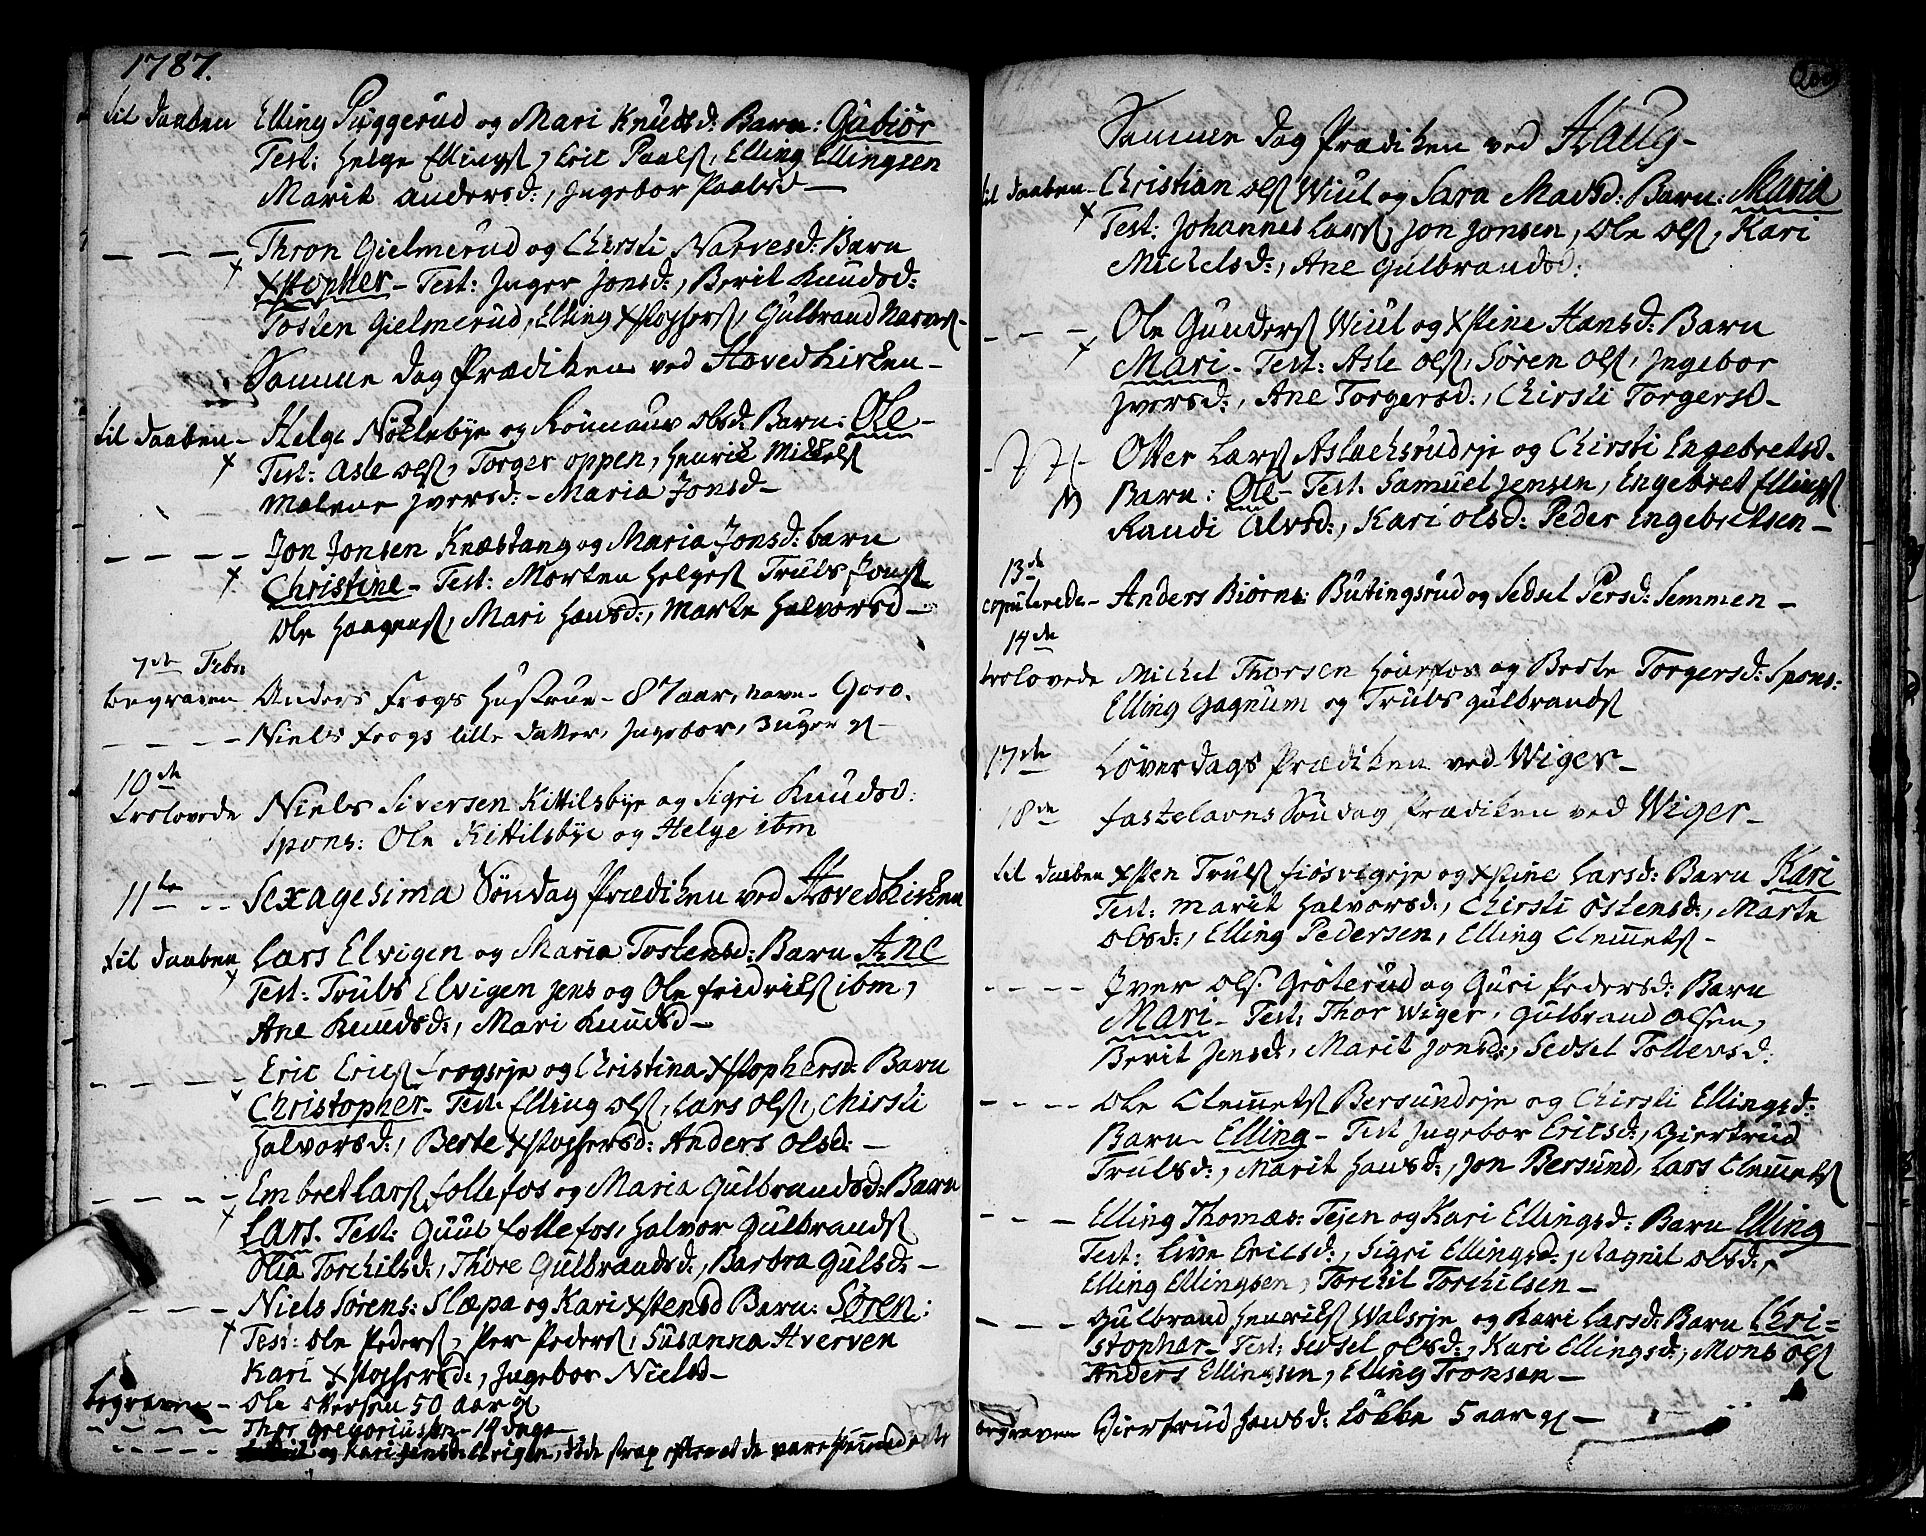 1787.
til daaben Elling Puggerud og Mari Knudsd: Barn: Gubiør
Test: Helge Ellings, Eric Paals, Elling Ellingsen
Marit Andersd:, Ingebor Paalsd —
— — — Thron Gielmerud og Chirsti Narvesd: Barn
Xstopher – Test: Inger Jonsd:, Berit Knudsd:
Tosten Gielmerud, Elling Xstophers, Gulbrand Narves –
Samme dag Prædiken ved Hovedkirken –
til daaben – Helge Nøklebye og Rønnaug Olsd: Barn: Ole –
Test: Asle Ols, Torger Oppen, Henrik Mikkels
Malene Iversd: – Maria Jonsd –
— — — — Jon Jonsen Knæstang og Maria Jonsd: barn
Christine – Test: Morten Helges Truls Jons
Ole Haagens, Mari Hansd:, Marte Halvorsd –
7de Febr:
begraven Anders Frogs Hustrue – 87 aar, navn – Goro.
— — — — Niels Frogs lille datter, Ingebor, 3 uger gl
10de
trolovede Niels Siversen Kittilsbye og Sigri Knudsd:
Spons: Ole Kittilsbye og Helge ibm
11te – – Sexagesima Søndag Prædiken ved Hovedkirken
til daaben Lars Elvigen og Maria Tostensd: Barn Ane
Test: Truls Elvigen Jens og Ole Fridriks ibm,
Ane Knudsd:, Mari Knudsd –
— — — — Eric Erics Frogseje og Christina Xstophersd: Barn
Christopher – Test: Elling Ols, Lars Ols, Chirsti
Halvorsd:, Berte Xstophersd: Anders Olsd: –
— — — — Embret Lars Follefos og Maria Gulbrandsd: Barn
Lars. Test: Guul Follefos, Halvor Gulbrands
Olia Torchilsd:, Thore Gulbrandsd:, Barbra Gulsd: –
— — — Niels Sørens: Slæpa og Kari Xstensd Barn: Søren:
Test: Ole Peders, Per Peders, Susanna Hverven
Kari Xstophersd:, Ingebor Nielsd –
begraven – Ole Ol 50 aar gl
— — — — Thor Gregoriussen – 14 dage –
— — — — og Kari Jensd: Elvigen, døde strax efter at de vare
Samme dag Prædiken ved Haug –
til daaben – Christian Ols Wiul og Sara Madsd: Barn: Maria
Test: Johannes Lars, Jon Jonsen, Ole Ols, Kari
Michelsd:, Ane Gulbrandsd:
— — — Ole Gunders Wiul og Xstine Hansd: Barn
Mari – Test: Asle Ols, Søren Ols, Ingebor
Iversd:, Ane Torgersd:, Chirsti Torgersd –
Otter Lars Aslachsrudeje og Chirsti Engebretsd.
Barn: Ole – Test: Samuel Jensen, Engebret Ellings
Randi Alvsd:, Kari Olsd: Peder Engebretsen –
13de
copulerede – Anders Biørns: Butingsrud og Sedsel Persd: Semmen –
14de
trolovede Michel Thorsen Heierfos og Berte Torgersd: Spons:
Elling Gagnum og Truls Gulbrands
17de Løverdags Prædiken ved Wiger –
18de Fastelavns Søndag Prædiken ved Wiger –
til daaben Xsten Truls Fiøsvigeje og Xstine Larsd: Barn Kari
Test: Marit Halvorsd:, Chirsti Ostensd:, Marte
Olsd:, Elling Pedersen, Elling Clemets –
— — — — Iver Ols: Grøterud og Guri Pedersd: Barn
Mari – Test: Thor Wiger, Gulbrand Olsen,
Berit Jensd:, Marit Jonsd:, Sedsel Tollevsd:
— — — — Ole Clemets Bersundeje og Chirsti Ellingsd:
Barn – Elling – Test Ingebor Ericsd:, Giertrud
Trulsd:, Marit Hansd:, Jon Bersund, Lars Clemets
— — — Elling Thomæs: Tejen og Kari Ellingsd: Barn Elling
Test: Live Ericsd:, Sigri Ellingsd: Magnil Olsd:,
Elling Ellingsen, Torchil Torchilsen –
— — — Gulbrand Henriks Walseje og Kari Larsd: Barn Chri=
stopher – Test: Sedsel Olsd:, Kari Ellingsd:, Mons Ols
Anders Ellingsen, Elling Tronsen –
begraven Giertrud Hansd: Løkke 5 aar gl –